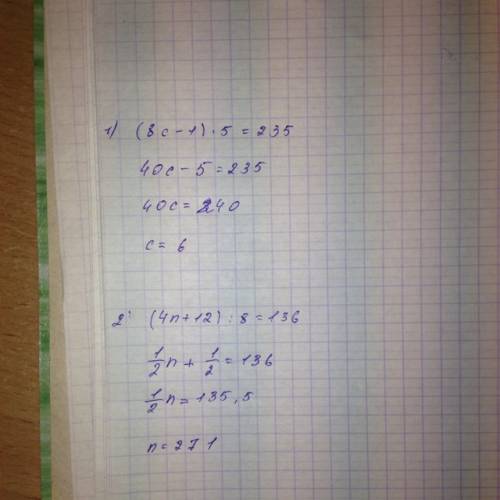 1) (8c-1)·5=235
40c-5=235
40c=240
c=6
2) (4n+12):8=136
1/2n+1/2=136
1/2n=135,5
n=271